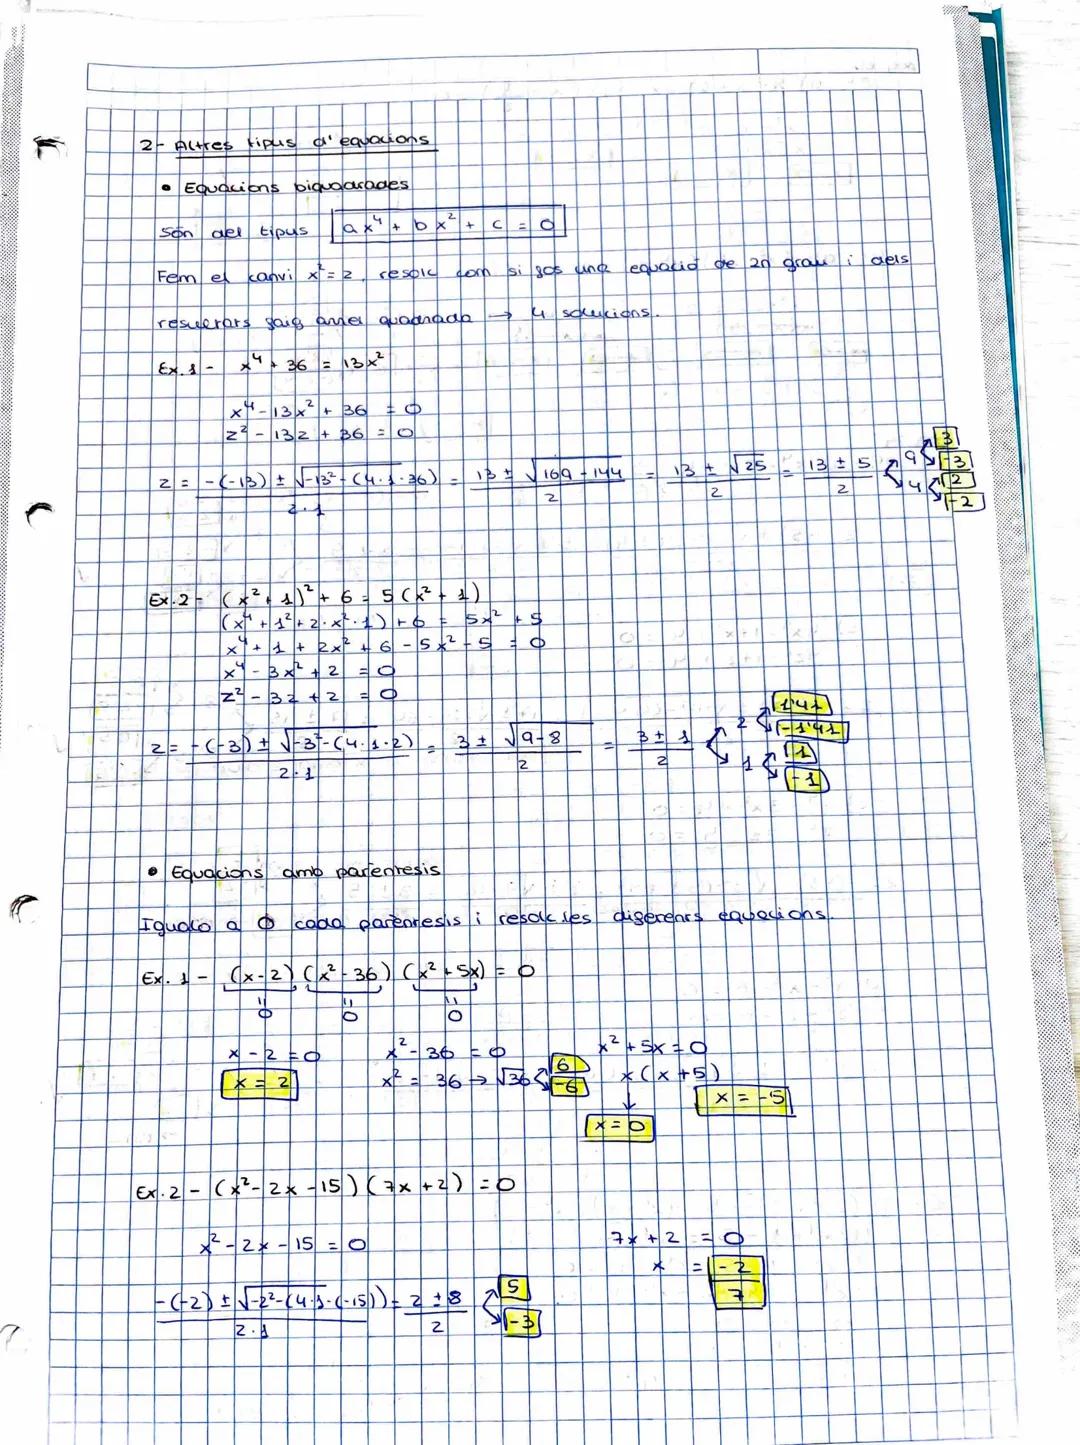 2- Altres tipus d'equacions
• Equacions biquadrades
Són del tipus ax⁴ + bx² + c = 0
Fem el canvi x² = z, resolc com si fos una equació de 2n grau i dels
resultats faig arrel quadrada → 4 solucions.
Ex. 1 - x⁴ + 36 = 13x²
x⁴ - 13x² + 36 = 0
z² - 13z + 36 = 0
z = (-(-13) ± √(-13² - (4·1·36))) / (2·1) = (13 ± √(169 - 144)) / 2 = (13 ± √25) / 2 = (13 ± 5) / 2 ↗ 9 ↗ 3 ↘ -3 ↘ 4 ↗ 2 ↘ -2
Ex. 2 - (x² + 1)² + 6 = 5(x² + 1)
(x⁴ + 1² + 2·x²·1) + 6 = 5x² + 5
x⁴ + 1 + 2x² + 6 - 5x² - 5 = 0
x⁴ - 3x² + 2 = 0
z² - 3z + 2 = 0
z = (-(-3) ± √(-3² - (4·1·2))) / (2·1) = (3 ± √(9-8)) / 2 = (3 ± 1) / 2 ↗ 2 ↗ 1'41 ↘ -1'41 ↘ 1 ↗ 1 ↘ -1
• Equacions amb parèntesis
Igualo a 0 cada parèntesis i resolc les diferents equacions.
Ex. 1 - (x-2) (x² - 36) (x² + 5x) = 0
= 0 = 0 = 0
x - 2 = 0 x² - 36 = 0 x² + 5x = 0
x = 2 x² = 36 → √36 ↗ 6 ↘ -6 x(x+5)
x = 0 x = -5
Ex. 2 - (x² - 2x - 15) (7x + 2) = 0
x² - 2x - 15 = 0 7x + 2 = 0
x = -2/7
(-(-2) ± √(-2² - (4·1·(-15)))) / (2·1) = (2 ± 8) / 2 ↗ 5 ↘ -3